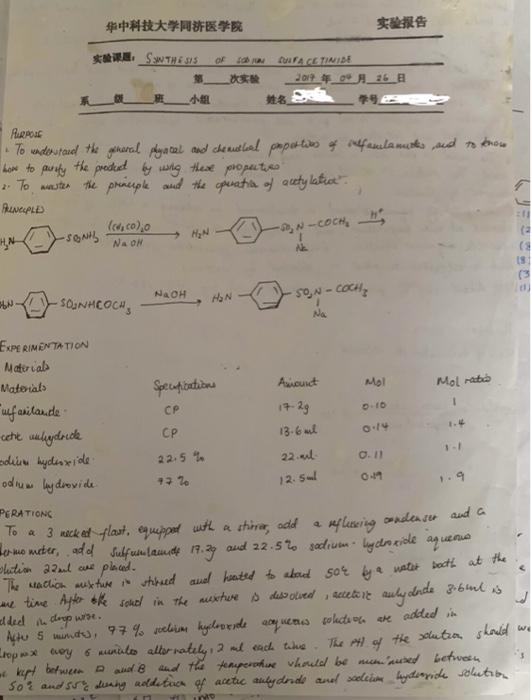 华中科技大学同济医学院 实验报告
实验课题: SYNTHESIS OF SODIUM SULFACETIMIDE
第 次实验 2017 年 04 月 26 日
系 级 班 小组 姓名 学号
PURPOSE
1. To understand the general physical and chemical properties of and to know
how to purify the product by using these properties
2. To master the principle and the operation of acetylation.
PRINCIPLES
H2N- -SO2NH2 (CH3CO)2O NaOH H2N- -SO2N-COCH3 H+
Na
-SO2NHCOCH3 NaOH H2N- -SO2N-COCH3
Na
EXPERIMENTATION
Materials
Materials Specifications Amount Mol Mol ratio
CP 17.2g 0.10 1
anhydride CP 13.6ml 0.14 1.4
hydroxide 22.5% 22.ml 0.11 1.1
hydroxide 77% 12.5ml 0.19 1.9
To a 3 necked flast, equipped with a stirrer, add a refluxing condenser and a
add 17.2g and 22.5% sodium hydroxide aqueous
22ml are placed.
The reaction mixture is stirred and heated to about 50°C by a water bath at the
time. After the solid in the mixture is dissolved, anhydride 3.6ml is
in dropwise.
After 5 minutes, 77% sodium hydroxide aqueous solution are added in
every 5 minutes alternately, 2 ml each time. The PH of the solution should
kept between 12 and 13 and the temperature should be between
50°C and 55°C during addition of acetic anhydride and sodium hydroxide solution